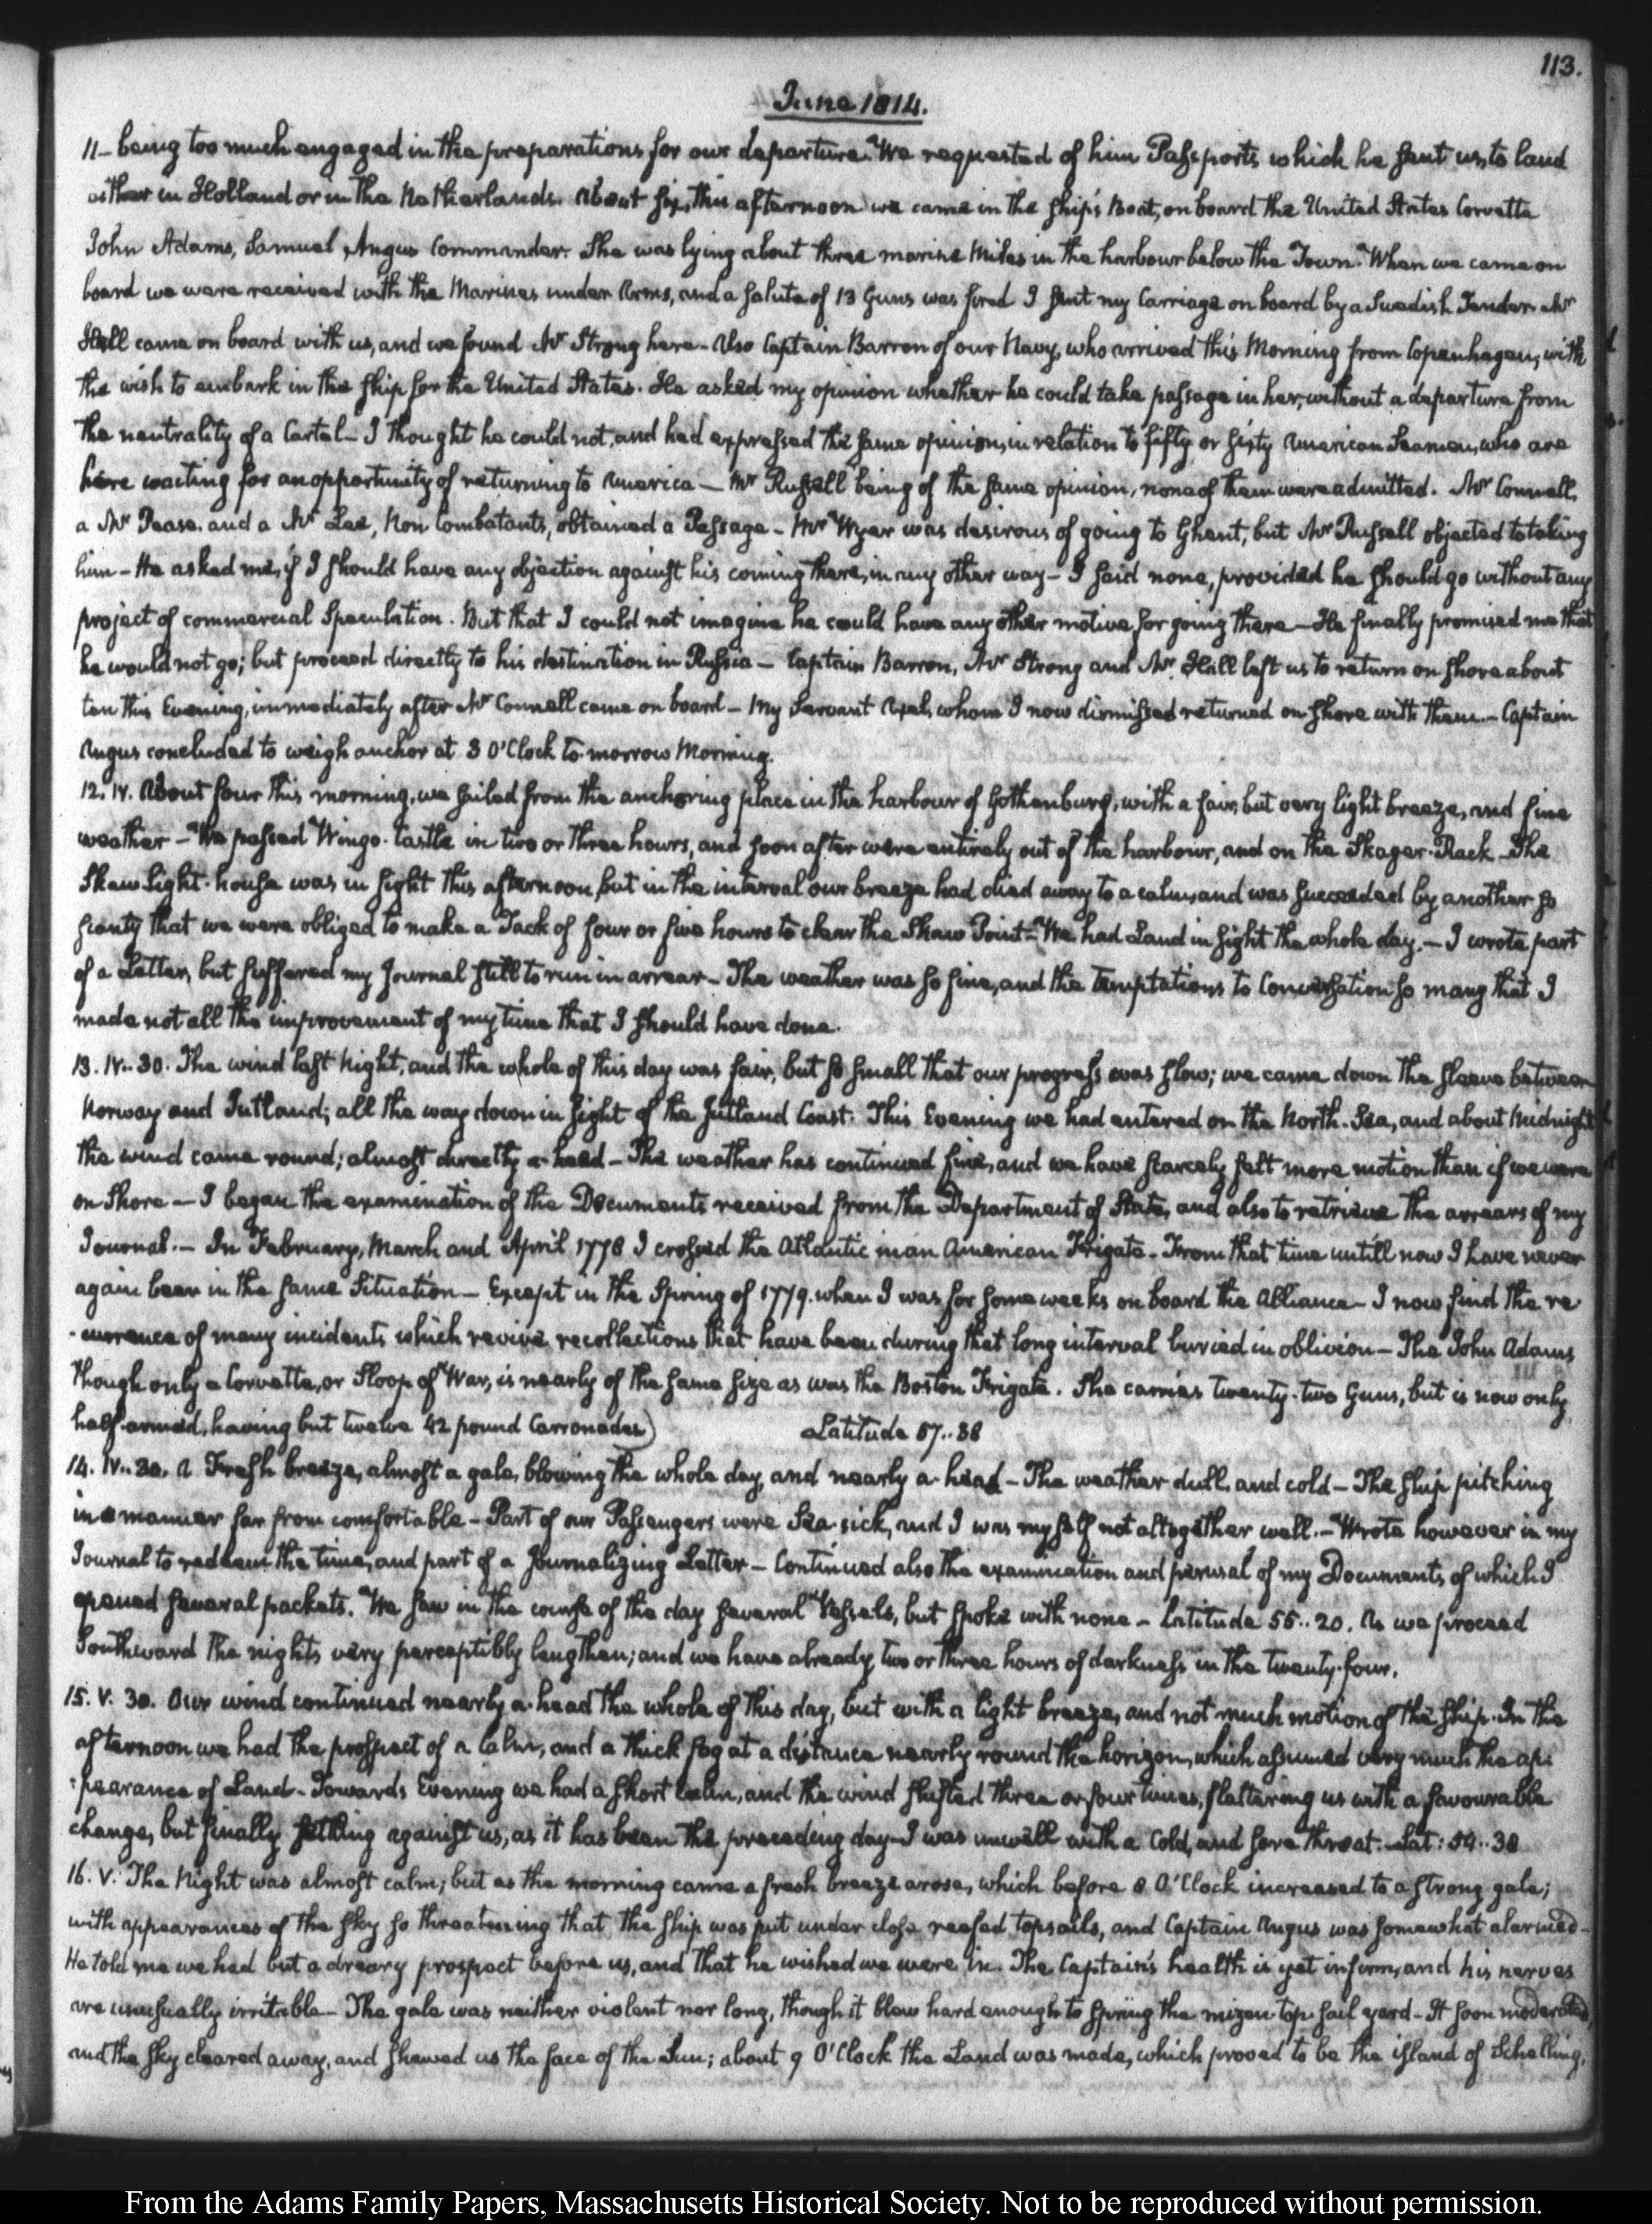 113.
June 1814.
11_ being too much engaged in the preparations for our departure. We requested of him Passports, which he sent us, to land
either in Holland or in the Netherlands. About six, this afternoon we came in the ship's Boat, on board the United States Corvette
John Adams, Samuel Angus Commander. She was lying about three marine Miles in the harbour below the Town. When we came on
board we were received with the Marines under Arms, and a salute of 13 Guns was fired I sent my Carriage on board by a Swedish Tender. Mr
Hall came on board with us, and we found Mr Strong here_ Also Captain Barron of our Navy, who arrived this Morning from Copenhagen, with
the wish to embark in this ship for the United States. He asked my opinion whether he could take passage in her, without a departure from
the neutrality of a Cartel_ I thought he could not, and had expressed the same opinion, in relation to fifty or sixty American Seamen, who are
here waiting for an opportunity of returning to America _ Mr Russell being of the same opinion, none of them were admitted. Mr Connell,
a Mr Pease, and a Mr Lee, Non Combatants, obtained a Passage_ Mr Wyer was desirous of going to Ghent, but Mr Russell objected to taking
him_ He asked me, if I should have any objection against his coming there, in any other way_ I said none, provided he should go without any
project of commercial Speculation. But that I could not imagine he could have any other motive for going there_ He finally promised me that
he would not go; but proceed directly to his destination in Russia_ Captain Barron, Mr Strong and Mr Hall left us to return on shore about
ten this Evening, immediately after Mr Connell came on board_ My Servant Axel, whom I now dismissed returned on shore with them_ Captain
Angus concluded to weigh anchor at 3 O'Clock to-morrow Morning.
12. IV. About four this morning, we sailed from the anchoring place in the harbour of Gothenburg, with a fair, but very light breeze, and fine
weather_ We passed Wingo-Castle in two or three hours, and soon after were entirely out of the harbour, and on the Skager-Rack_ The
Skaw Light-house was in sight this afternoon, but in the interval our breeze had died away to a calm, and was succeeded by another so
scanty that we were obliged to make a Tack of four or five hours to clear the Skaw Point_ We had Land in sight the whole day._ I wrote part
of a Letter, but suffered my Journal still to run in arrear_ The weather was so fine, and the Temptations to Conversation so many that I
made not all the improvement of my time that I should have done.
13. IV..30. The wind last Night, and the whole of this day was fair, but so small that our progress was slow; we came down the sleeve between
Norway and Jutland; all the way down in sight of the Jutland Coast. This Evening we had entered on the North-Sea, and about Midnight
the wind came round; almost directly a-head_ The weather has continued fine, and we have scarcely felt more motion than if we were
on Shore_ I began the examination of the Documents received from the Department of State, and also to retrieve the arrears of my
Journal._ In February, March and April 1778 I crossed the Atlantic in an American Frigate_ From that time untill now I have never
again been in the same Situation_ Except in the Spring of 1779. when I was for some weeks on board the Alliance_ I now find the re-
-currence of many incidents which revive recollections that have been during that long interval buried in oblivion_ The John Adams
though only a Corvette, or Sloop of War, is nearly of the same size as was the Boston Frigate. She carries twenty-two Guns, but is now only
half-armed, having but twelve 42 pound Carronades) Latitude 57..38
14. IV..30. A Fresh breeze, almost a gale, blowing the whole day, and nearly a-head_ The weather dull, and cold_ The ship pitching
in a manner far from comfortable_ Part of our Passengers were Sea-sick, and I was myself not altogether well._ Wrote however in my
Journal to redeem the time, and part of a Journalizing Letter_ Continued also the examination and perusal of my Documents, of which I
opened several packets. We saw in the course of the day several Vessels, but spoke with none_ Latitude 55..20. As we proceed
Southward the nights very perceptibly lengthen; and we have already two or three hours of darkness in the twenty-four.
15. V. 30. Our wind continued nearly a-head the whole of this day, but with a light breeze, and not much motion of the ship. In the
afternoon we had the prospect of a Calm, and a thick fog at a distance nearly round the horizon, which assumed very much the ap-
-pearance of Land_ Towards Evening we had a short calm, and the wind shifted three or four times, flattering us with a favourable
change, but finally settling against us, as it has been the preceding day_ I was unwell with a Cold, and sore throat._ Lat: 54..38
16. V. The Night was almost calm; but as the morning came a fresh breeze arose, which before 8 O'Clock increased to a strong gale;
with appearances of the sky so threatening that the ship was put under close reefed topsails, and Captain Angus was somewhat alarmed_
He told me we had but a dreary prospect before us, and that he wished we were in. The Captain's health is yet infirm, and his nerves
are unusually irritable_ The gale was neither violent nor long, though it blew hard enough to spring the mizen top sail yard_ It soon moderated,
and the sky cleared away, and shewed us the face of the Sun; about 9 O'Clock the Land was made, which proved to be the island of Schelling,
From the Adams Family Papers, Massachusetts Historical Society. Not to be reproduced without permission.